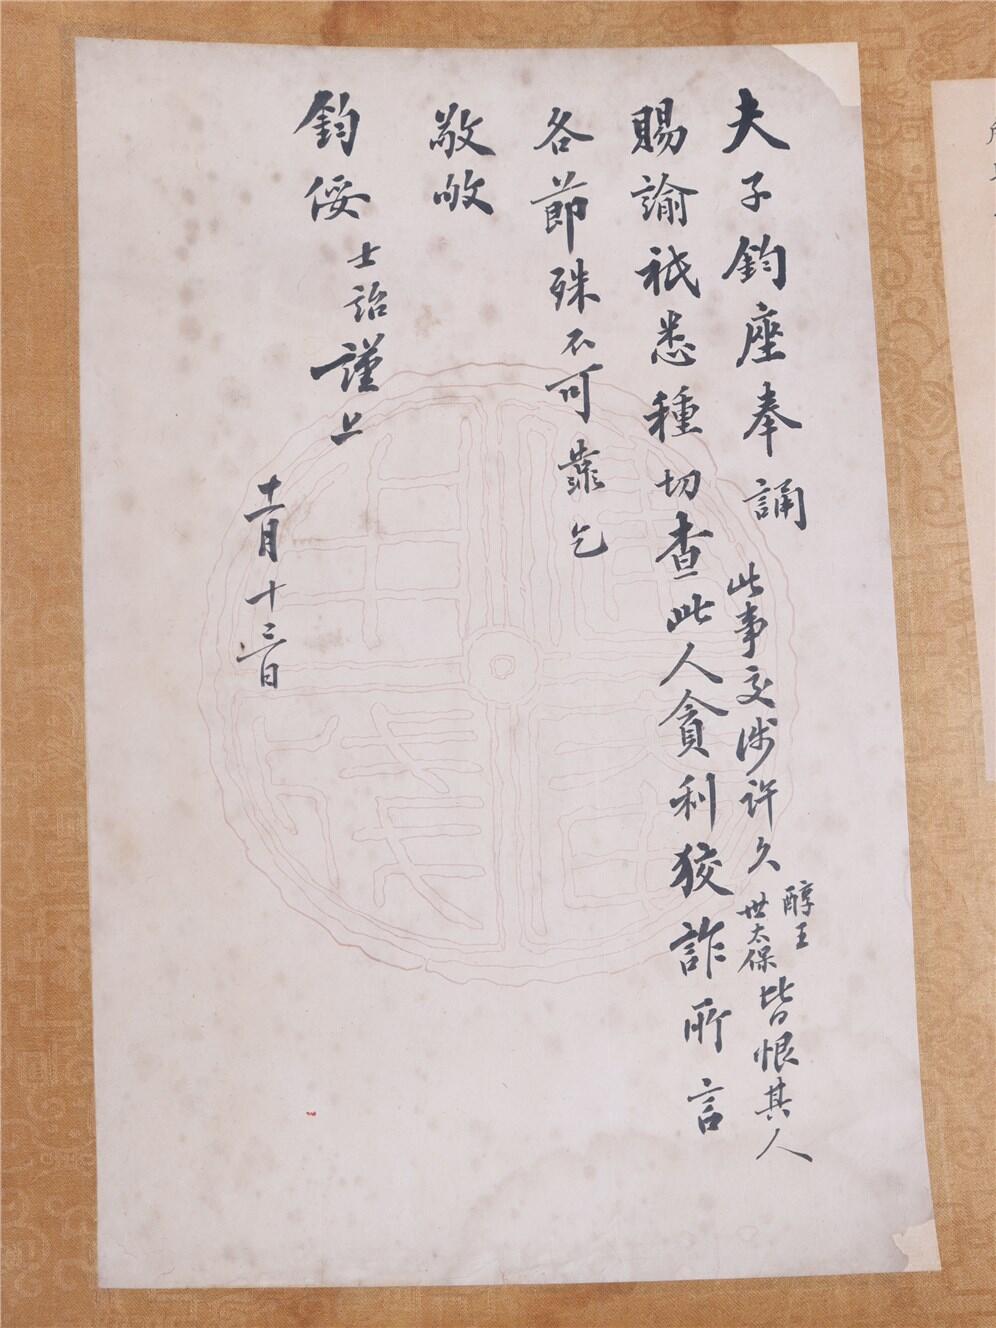 夫子鈞座奉誦
此事交涉許久醇王世太保皆恨其人
賜諭祇悉種切查此人貪利狡詐所言
各節殊不可靠乞
敬敂
鈞綏
士詒謹上
十一月十三日